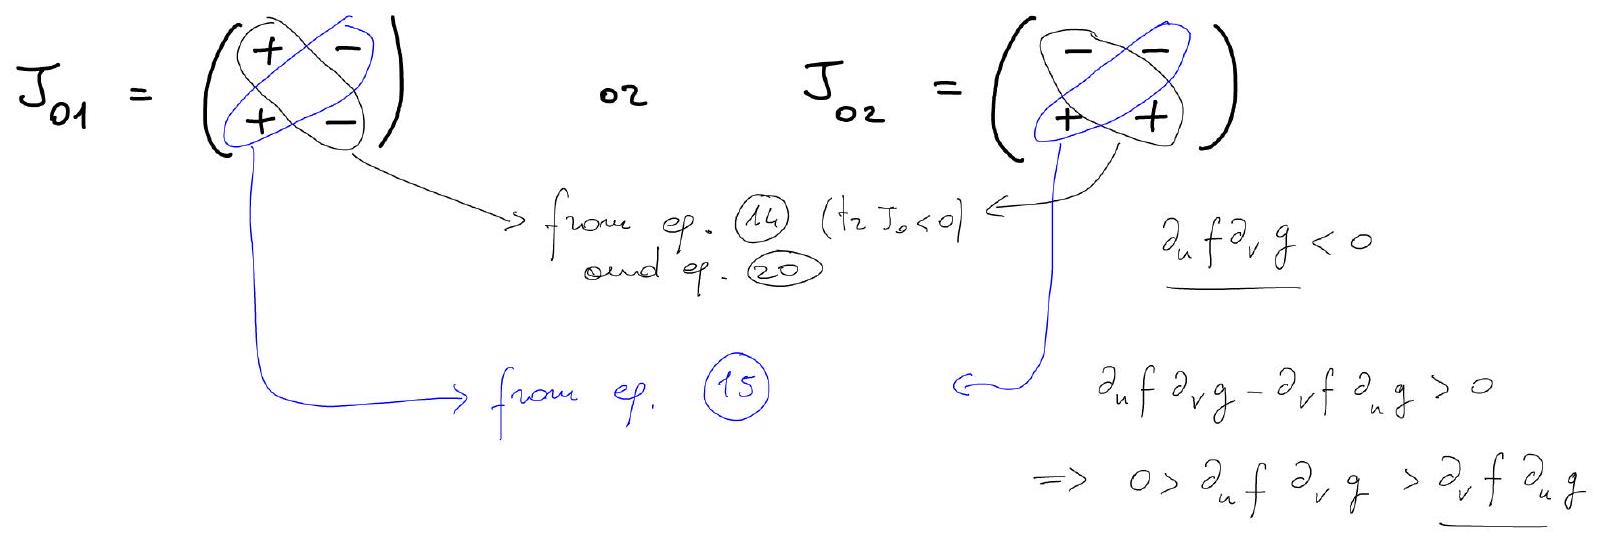 J₀₁ = ( + − + − ) or J₀₂ = ( − − + + )
from eq. 14 (tr J₀<0)
and eq. 20
∂ᵤf∂ᵥg < 0
from eq. 15
∂ᵤf ∂ᵥg − ∂ᵥf ∂ᵤg > 0
=> 0 > ∂ᵤf ∂ᵥg > ∂ᵥf ∂ᵤg